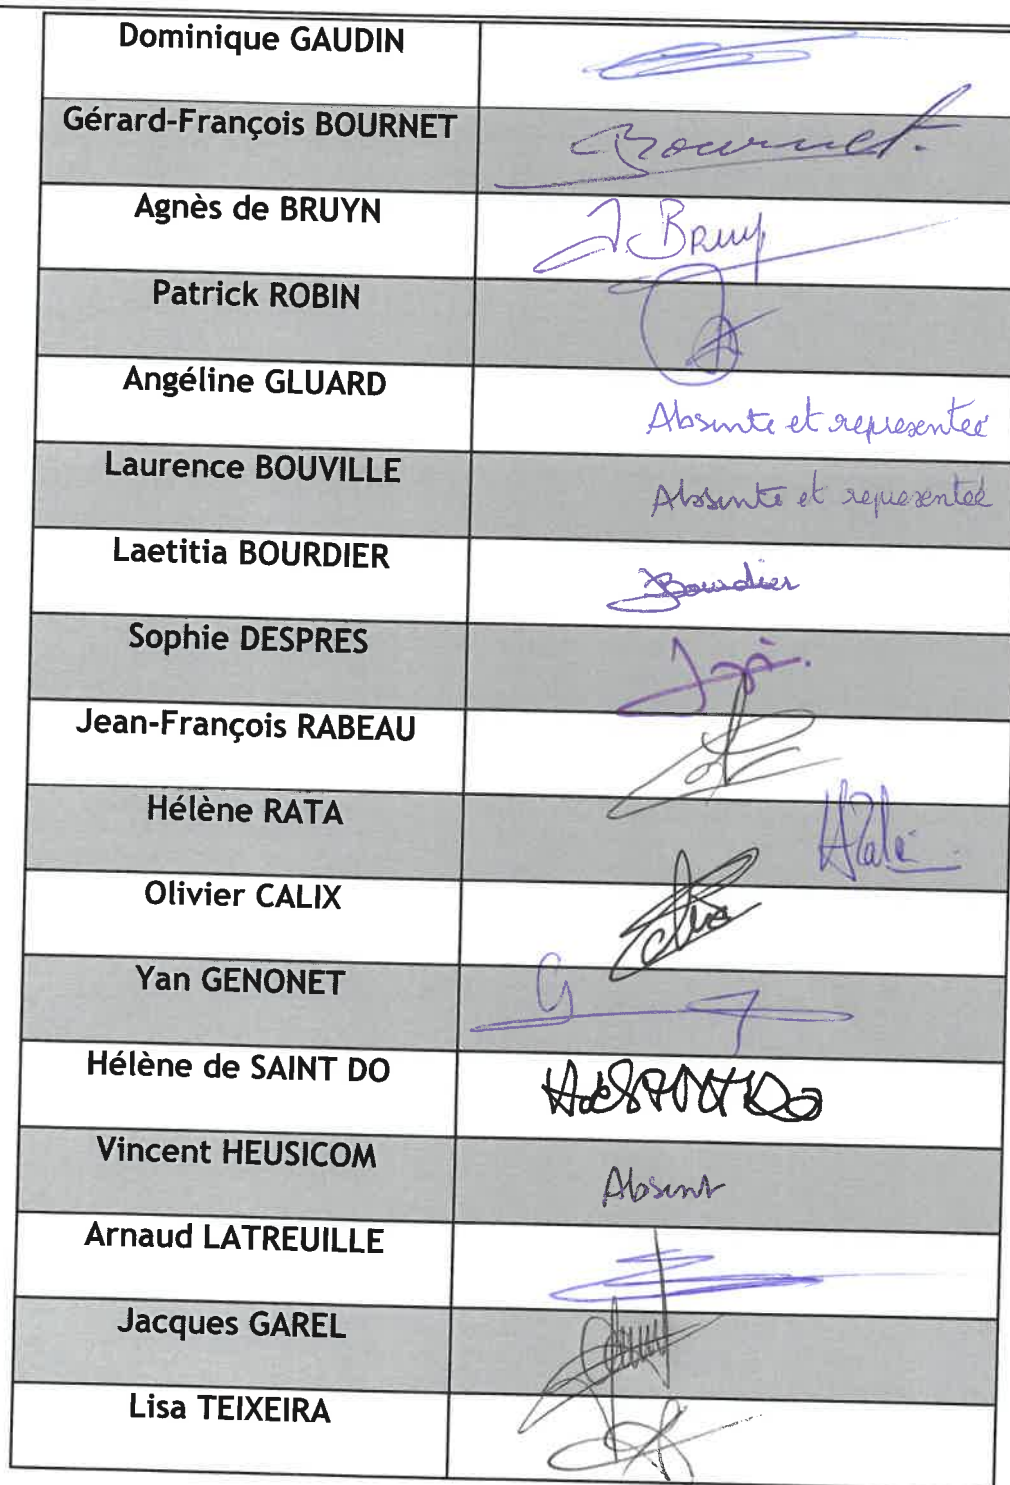 Dominique GAUDIN
Gérard-François BOURNET
Bournet.
Agnès de BRUYN
Patrick ROBIN
Angéline GLUARD
Absente et representeé
Laurence BOUVILLE
Absente et representeé
Laetitia BOURDIER
Bourdier
Sophie DESPRES
Jean-François RABEAU
Hélène RATA
Olivier CALIX
Yan GENONET
Hélène de SAINT DO
Vincent HEUSICOM
Absent
Arnaud LATREUILLE
Jacques GAREL
Lisa TEIXEIRA